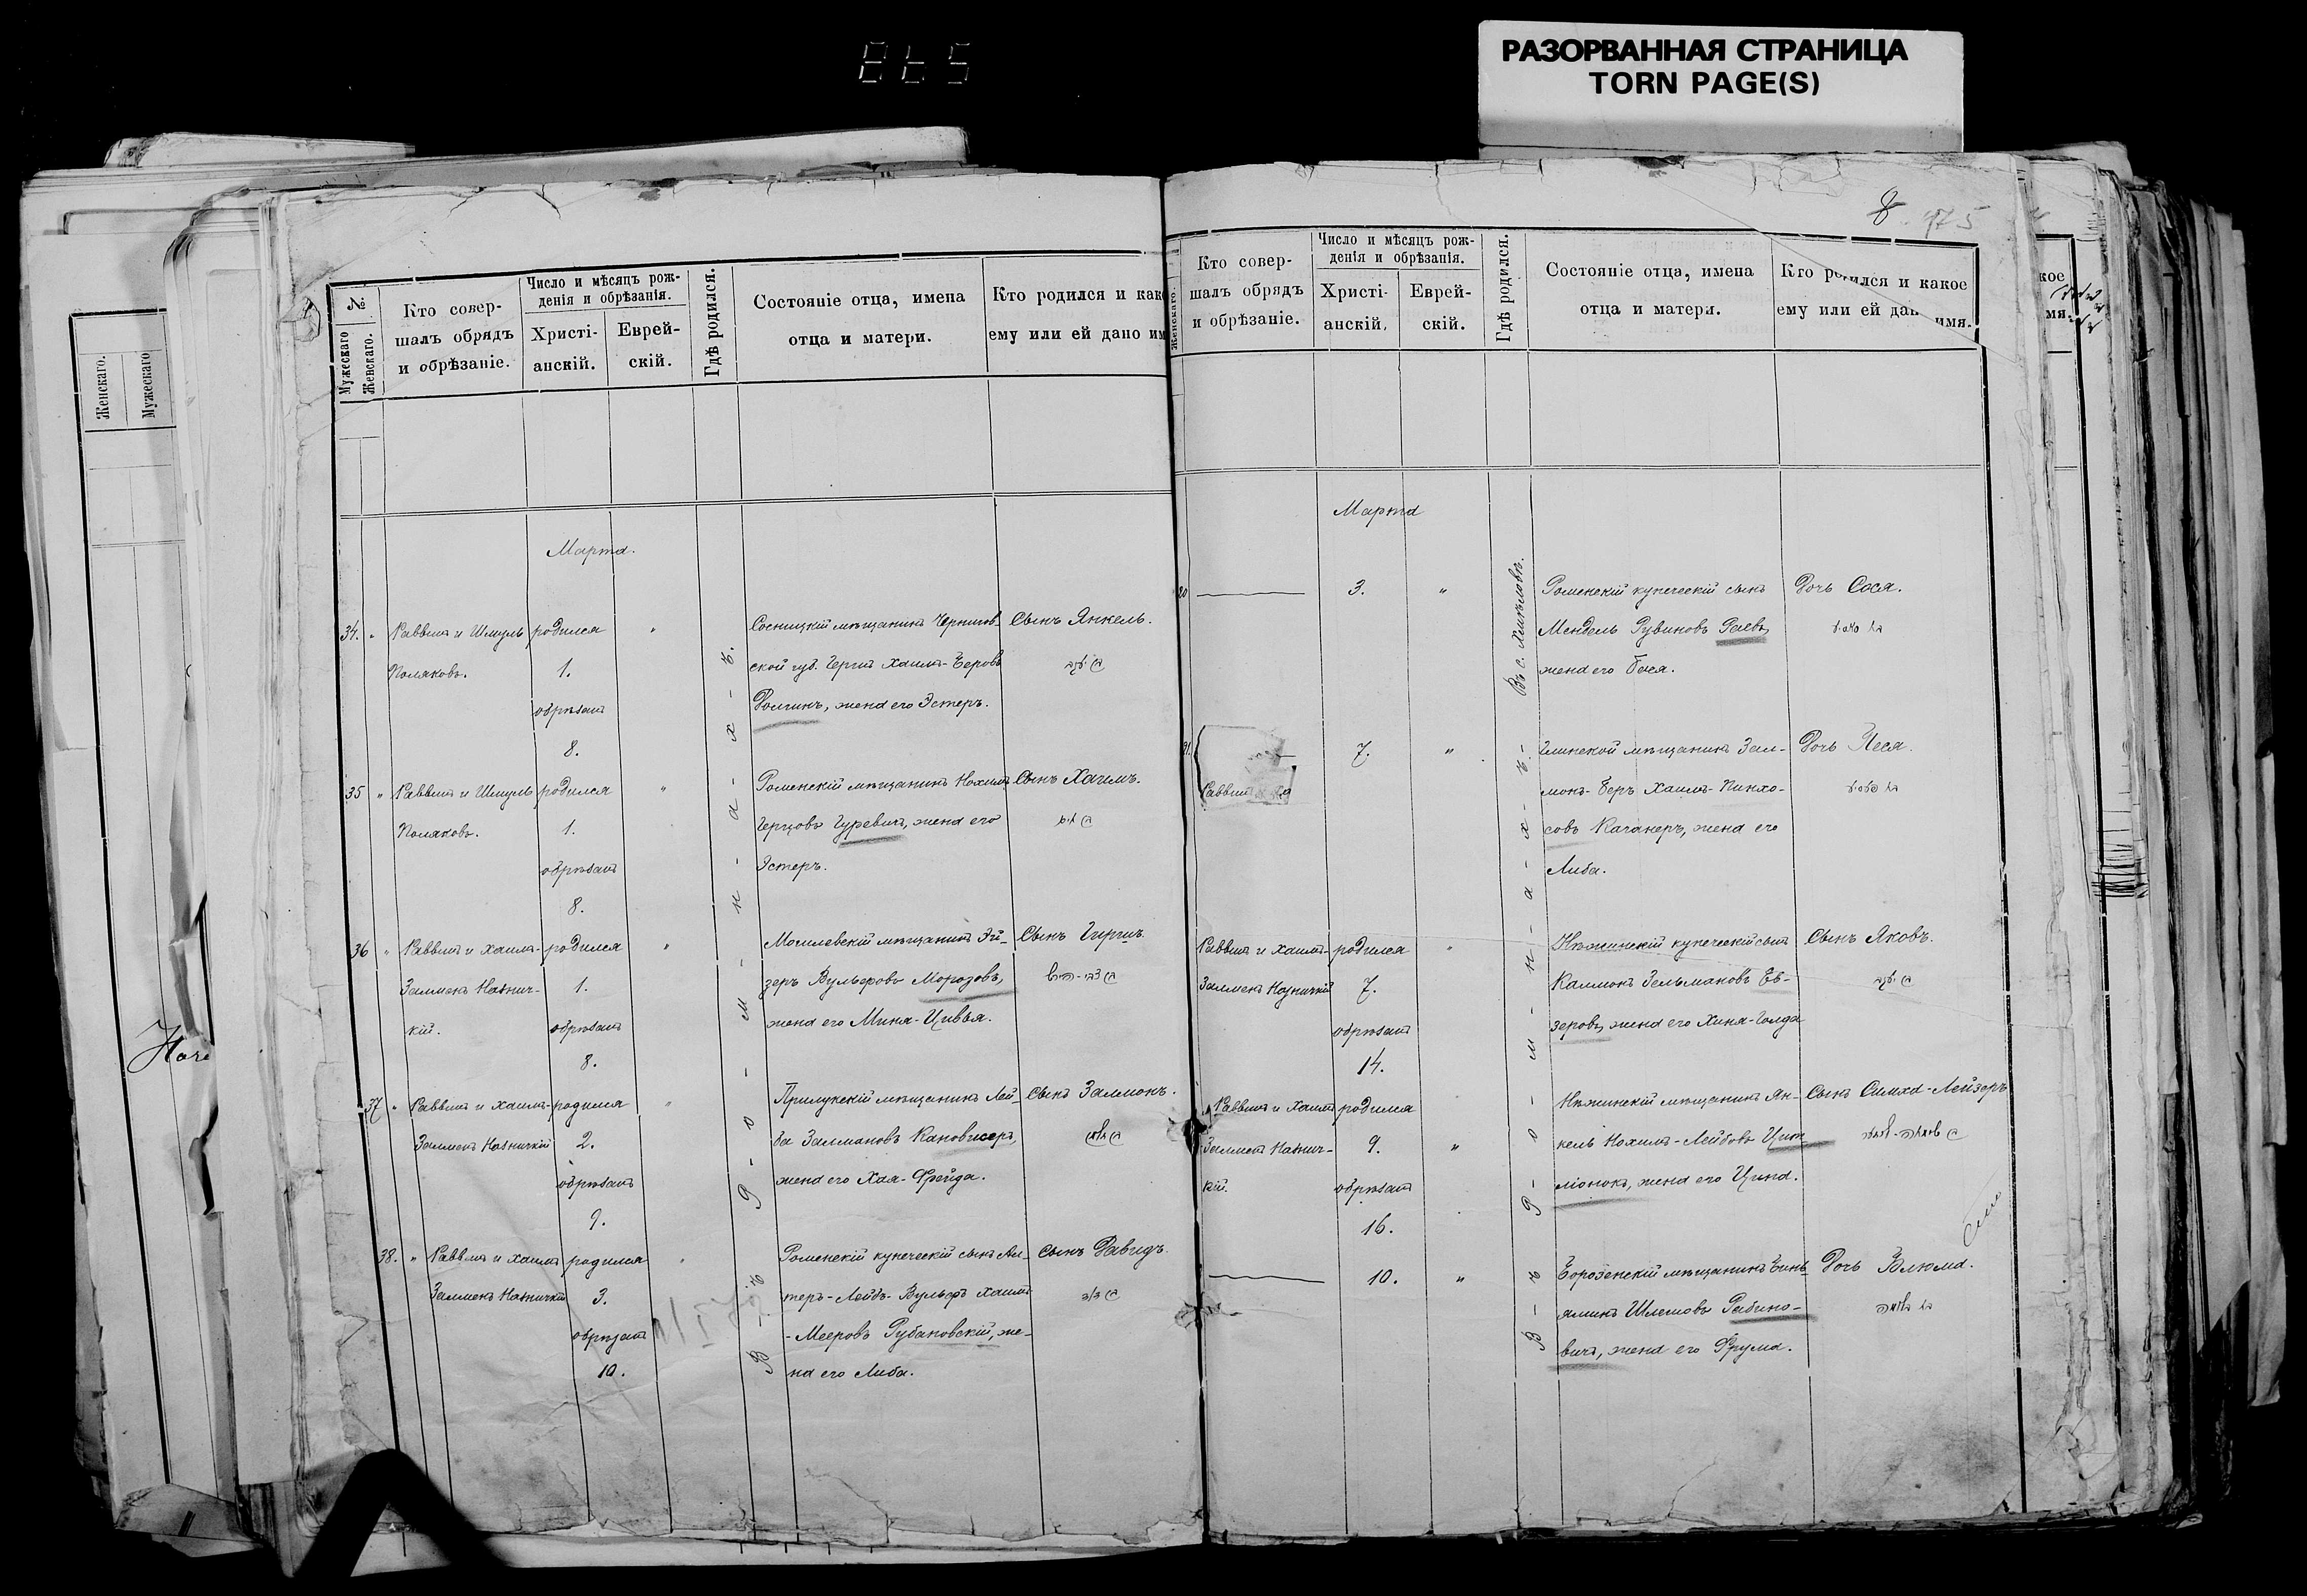 РАЗОРВАННАЯ СТРАНИЦА
TORN PAGE(S)
Женскаго.
Мужескаго
№
Мужескаго
Женскаго.
Кто совер-
шалъ обрядъ
и обрѣзаніе.
Число и мѣсяцъ рож-
денія и обрѣзанія.
Христі-
анскій.
Еврей-
скій.
Гдѣ родился.
Состояніе отца, имена
отца и матери.
Кто родился и как
ему или ей дано им
Марта.
В - ъ Р - о - м - н - а - х - ъ.
34. " Раввинъ и Шмуль
Поляковъ.
родился
1.
обрѣзанъ
8.
"
Сосницкій мѣщанинъ Чернигов-
ской губ. Герцъ Хаимъ-Беровъ
Долгинъ, жена его Эстеръ.
Сынъ Янкель.
35 " Раввинъ и Шмуль
Поляковъ.
родился
1.
обрѣзанъ
8.
"
Роменскій мѣщанинъ Нохимъ
Герцовъ Гуревичъ, жена его
Эстеръ.
Сынъ Хаимъ.
36 " Раввинъ и Хаимъ-
Залменъ Назниц-
кій.
родился
1.
обрѣзанъ
8.
"
Могилевскій мѣщанинъ
зеръ Вульфовъ Морозовъ,
жена его Миня-Цивья.
Сынъ Гиршъ.
37 " Раввинъ и Хаимъ-
Залменъ Назницкій
родился
2.
обрѣзанъ
9.
"
Прилукскій мѣщанинъ Лей-
ба Залмановъ
жена его Хая-Фрейда.
Сынъ Залмонъ.
38. " Раввинъ и Хаимъ
Залменъ Назницкій
родился
3.
обрѣзанъ
10.
"
Роменскій купеческій сынъ Ал-
теръ-Лейбъ-Вульфъ Хаимъ
-Мееровъ Рубановскій, же-
на его Либа.
Сынъ Давидъ.
8 975
Женскаго.
Кто совер-
шалъ обрядъ
и обрѣзаніе.
Число и мѣсяцъ рож-
денія и обрѣзанія.
Христі-
анскій.
Еврей-
скій.
Гдѣ родился.
Состояніе отца, имена
отца и матери.
Кто родился и какое
ему или ей дан имя.
кое
мя.
Марта
20
3.
"
Въ с.
Роменскій купеческій сынъ
Мендель Рувиновъ Раевъ,
жена его Бася.
Дочь Сося.
В - ъ Р - о - м - н - а - х - ъ -
21.
Раввинъ
7.
"
Глинской мѣщанинъ Зал-
монъ-Беръ Хаимъ-Пинхо-
совъ Каганеръ, жена его
Либа.
Дочь Песя.
Раввинъ и Хаимъ-
Залменъ Назницкій
родился
7.
обрѣзанъ
14.
"
Нѣжинскій купеческій сынъ
Калмонъ Зельмановъ Ев-
зеровъ, жена его Хиня-Голда
Сынъ Яковъ.
Раввинъ и Хаимъ
Залменъ Назниц-
кій.
родился
9.
обрѣзанъ
16.
"
Нѣжинскій мѣщанинъ Ян-
кель Нохимъ-Лейбовъ
жена его Цина.
Сынъ Симха-Лейзеръ
10.
"
Борозенскій мѣщанинъ Бинь-
яминъ Шлемовъ Рабино-
вичъ, жена его Фрума.
Дочь Блюма.